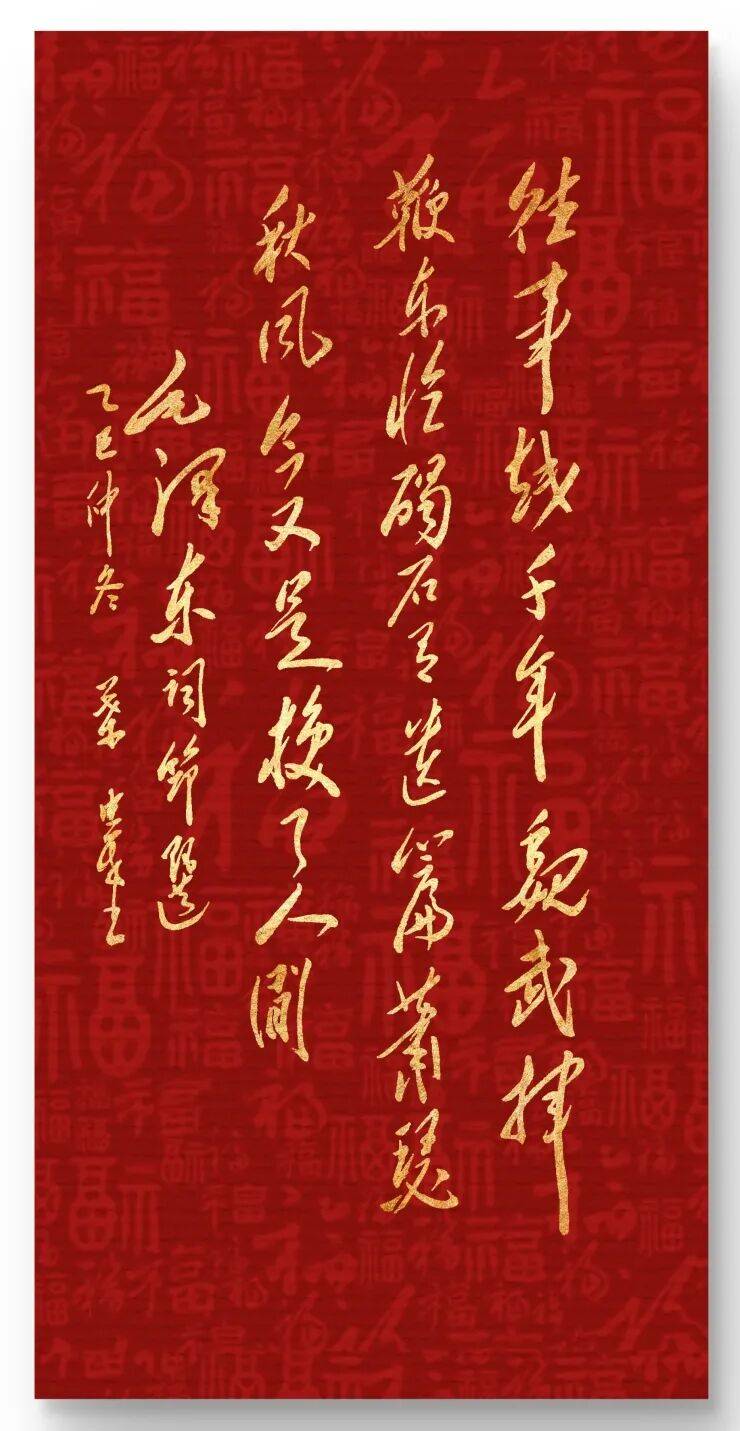 往事越千年魏武挥
鞭东临碣石有遗篇萧瑟
秋风今又是换了人間
毛泽东词節選
乙巳仲冬